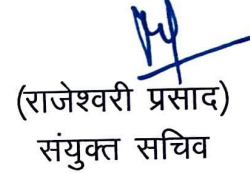 (राजेश्वरी प्रसाद)
संयुक्त सचिव